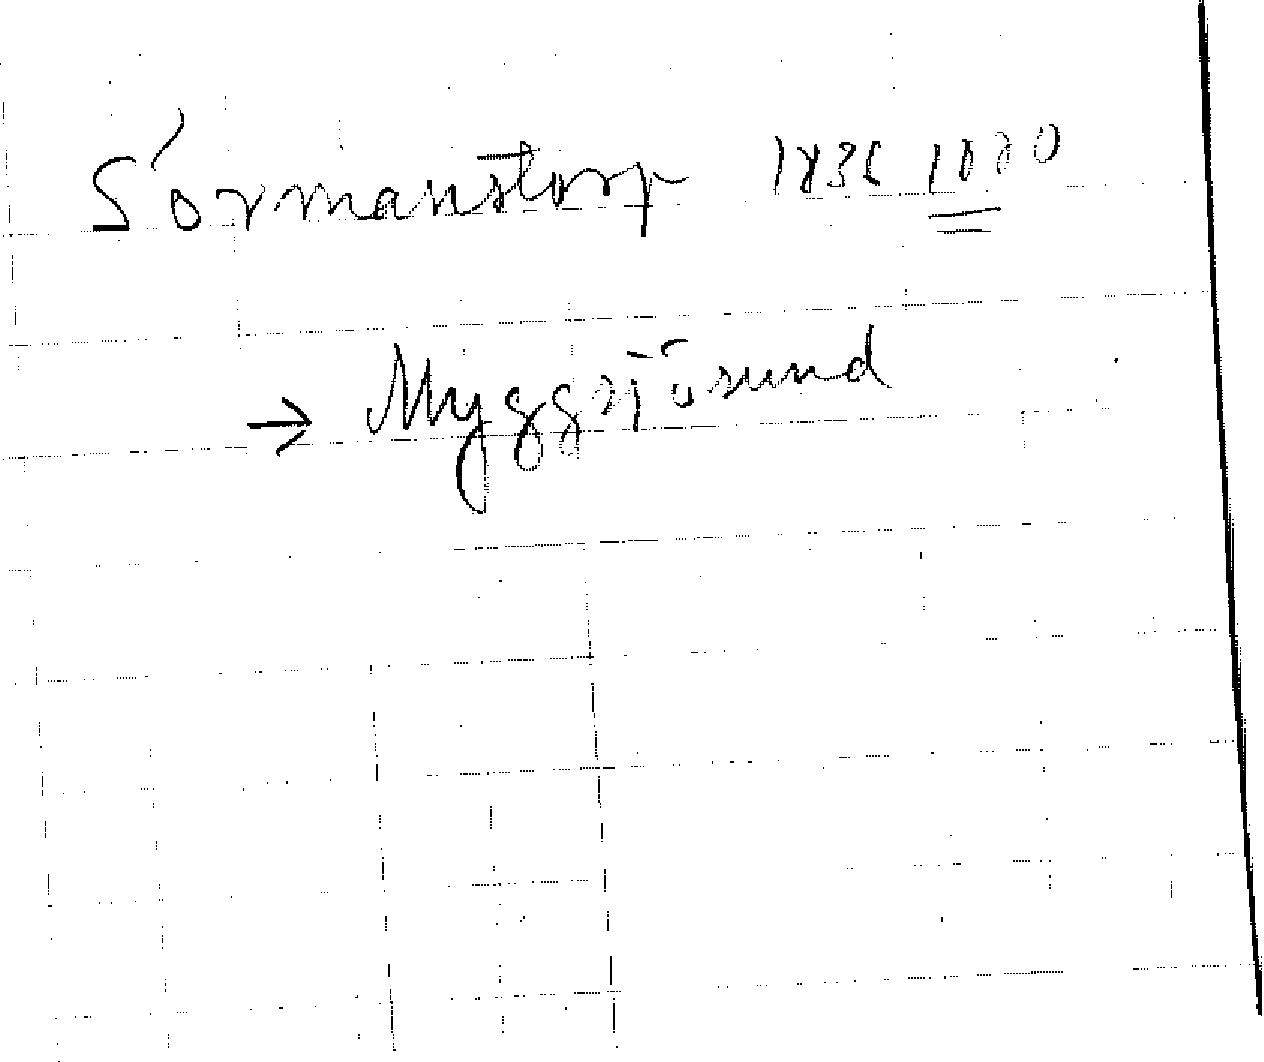 Sörmanstorp 1836 1870
→ Myggsjösund